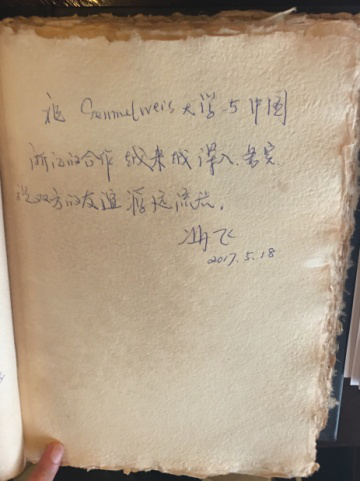 祝 Semmelweis 大学与中国
浙江的合作越来越深入、务实
祝双方的友谊源远流长。
冯飞
2017.5.18